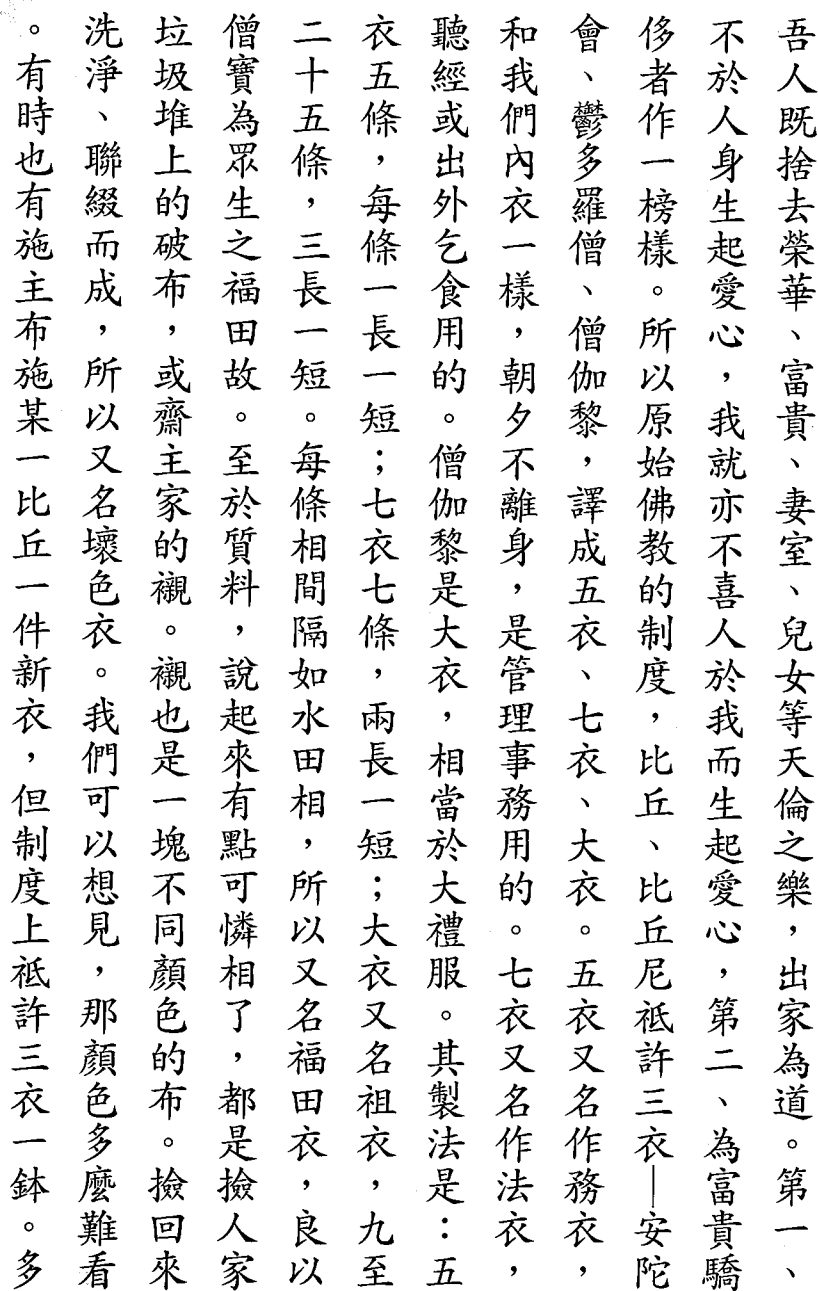 吾人既捨去榮華、富貴、妻室、兒女等天倫之樂，出家為道。第一、
不於人身生起愛心，我就亦不喜人於我而生起愛心，第二、為富貴驕
侈者作一榜樣。所以原始佛教的制度，比丘、比丘尼祗許三衣—安陀
會、鬱多羅僧、僧伽黎，譯成五衣、七衣、大衣。五衣又名作務衣，
和我們內衣一樣，朝夕不離身，是管理事務用的。七衣又名作法衣，
聽經或出外乞食用的。僧伽黎是大衣，相當於大禮服。其製法是：五
衣五條，每條一長一短；七衣七條，兩長一短；大衣又名祖衣，九至
二十五條，三長一短。每條相間隔如水田相，所以又名福田衣，良以
僧寶為眾生之福田故。至於質料，說起來有點可憐相了，都是撿人家
垃圾堆上的破布，或齋主家的襯。襯也是一塊不同顏色的布。撿回來
洗淨、聯綴而成，所以又名壞色衣。我們可以想見，那顏色多麼難看
。有時也有施主布施某一比丘一件新衣，但制度上祗許三衣一鉢。多